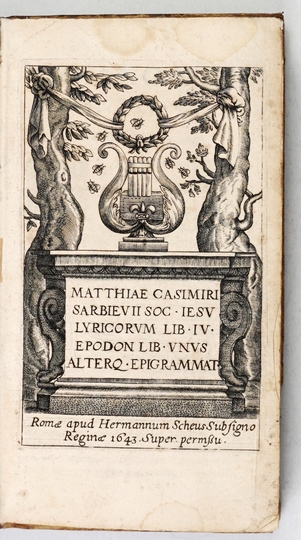 MATTHIAE CASIMIRI
SARBIEVII SOC · IESV
LYRICORVM LIB · IV ·
EPODON LIB · VNVS
ALTERQ · EPIGRAMMAT
Romæ apud Hermannum Scheus Subsigno
Reginæ 1643. Super. permissu.